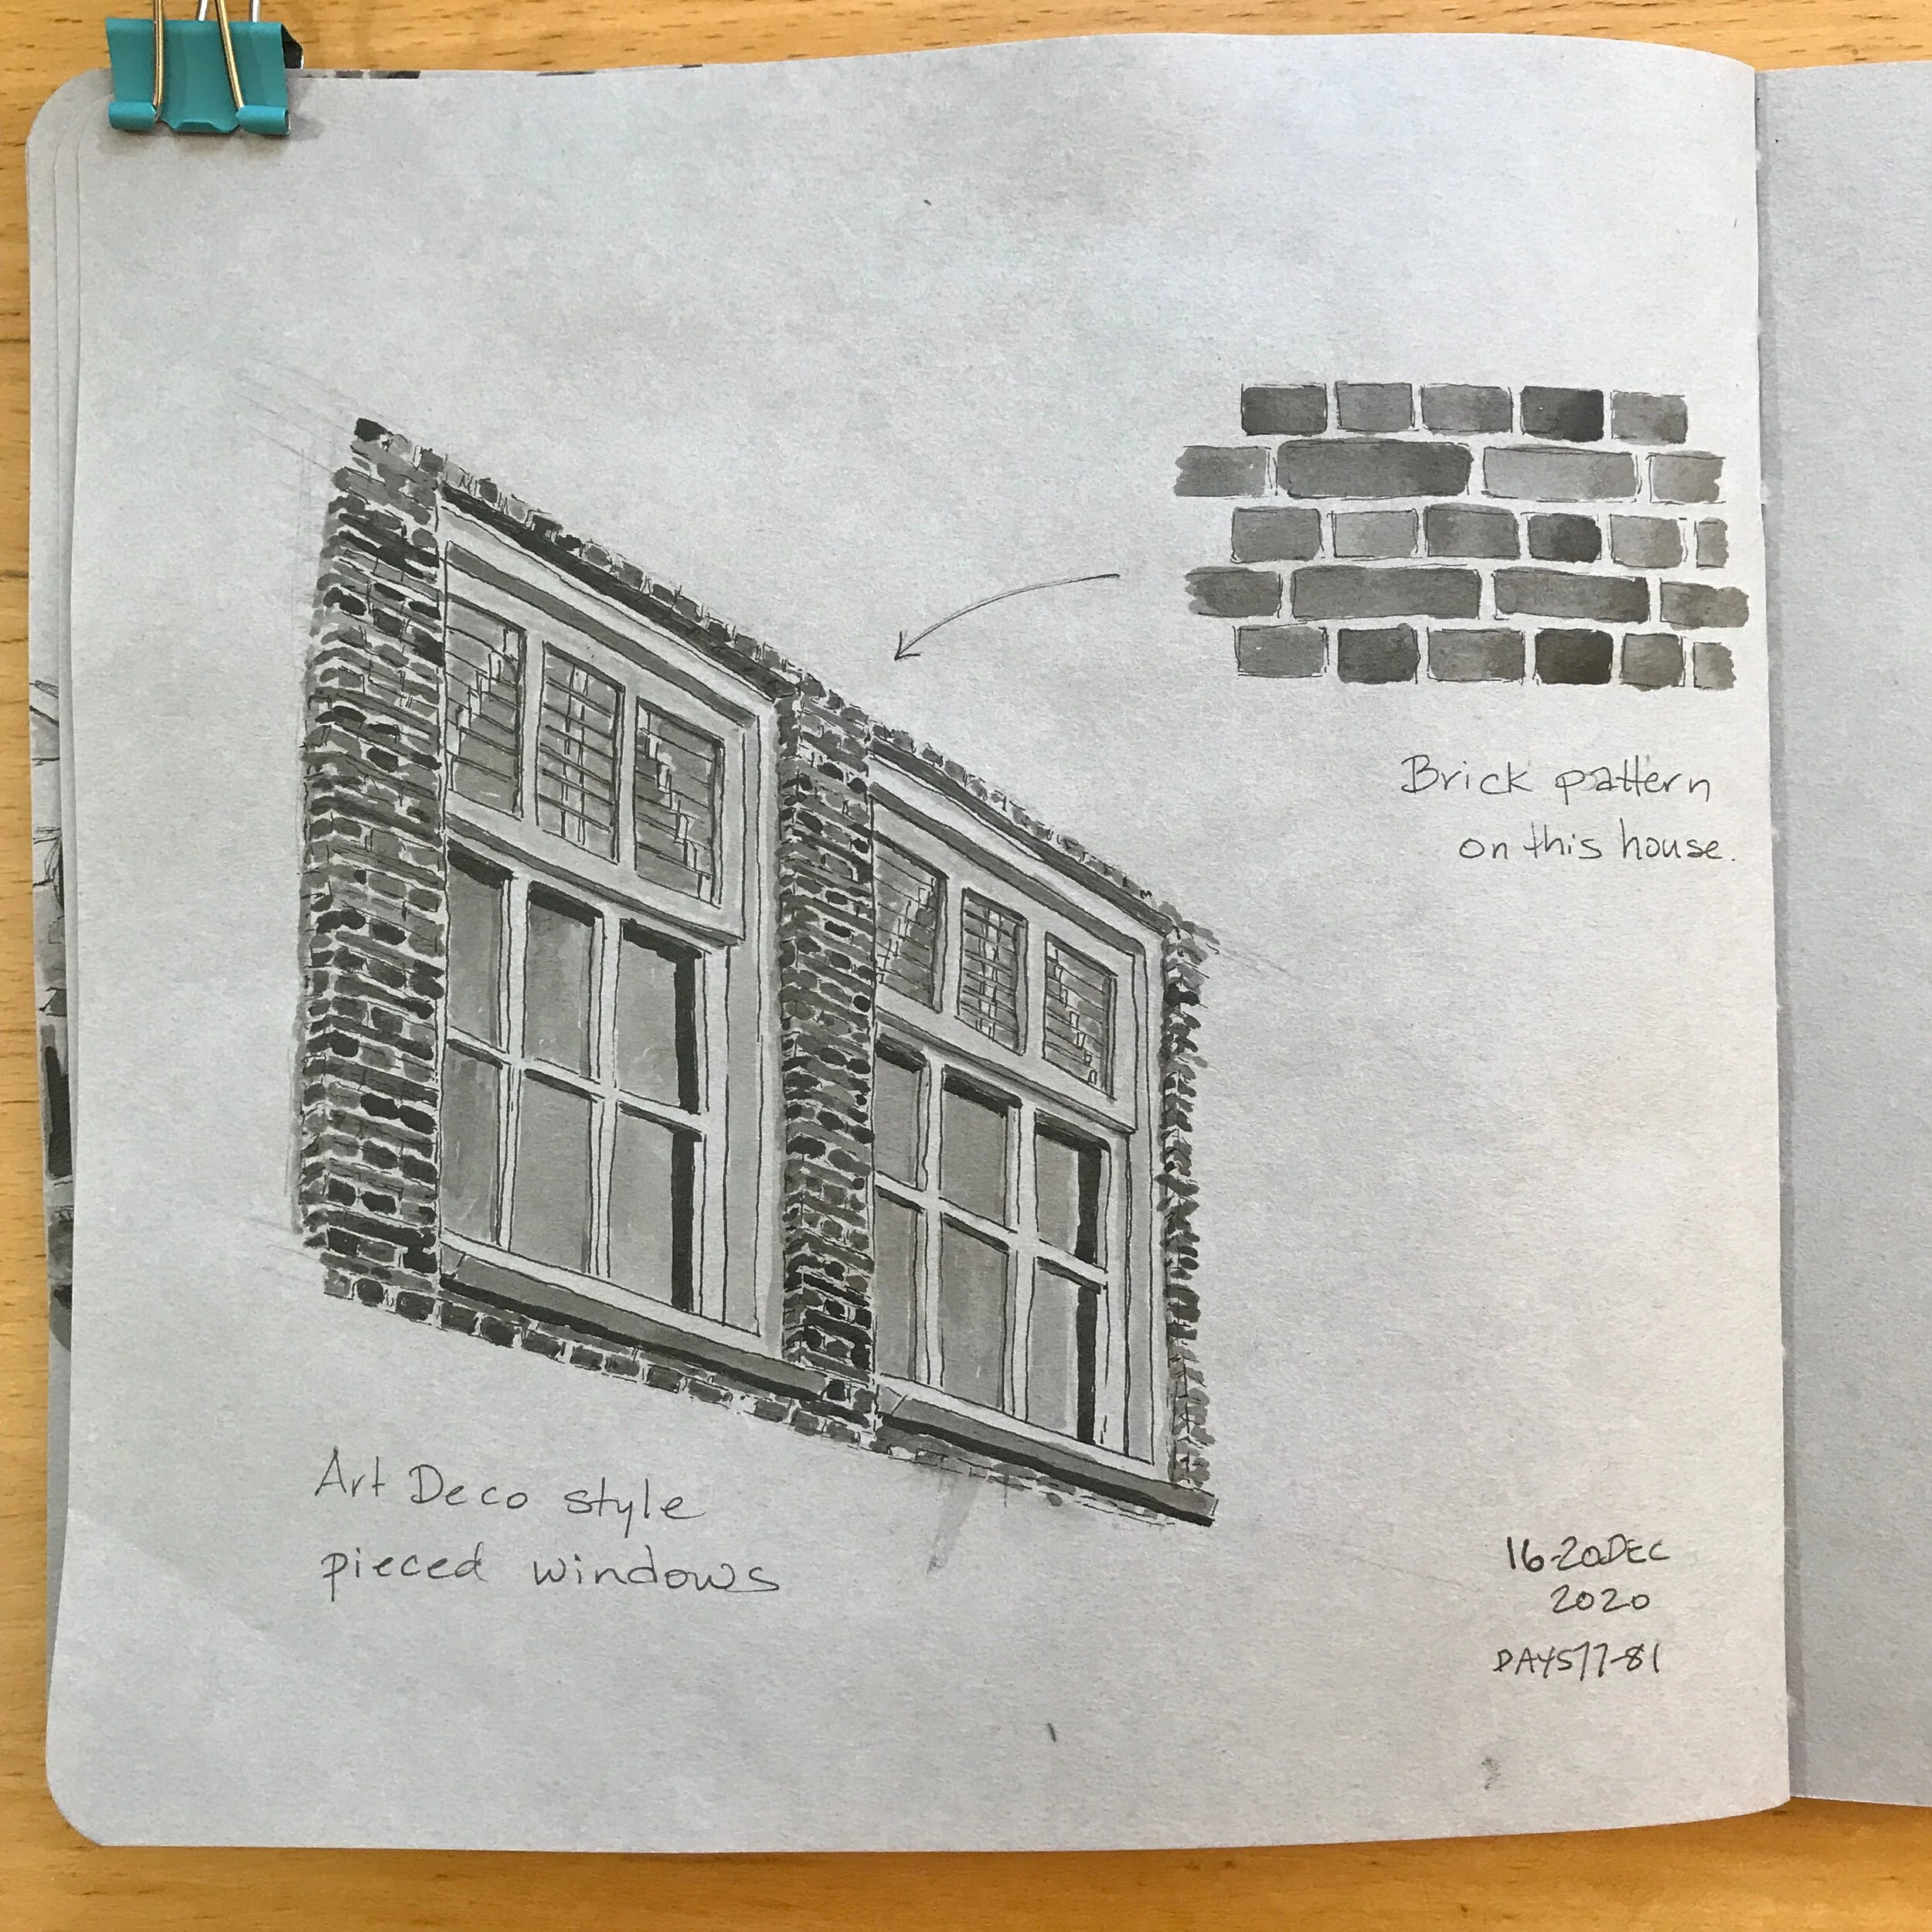 Brick pattern
on this house.
Art Deco style
pieced windows
16-20DEC
2020
DAYS77-81